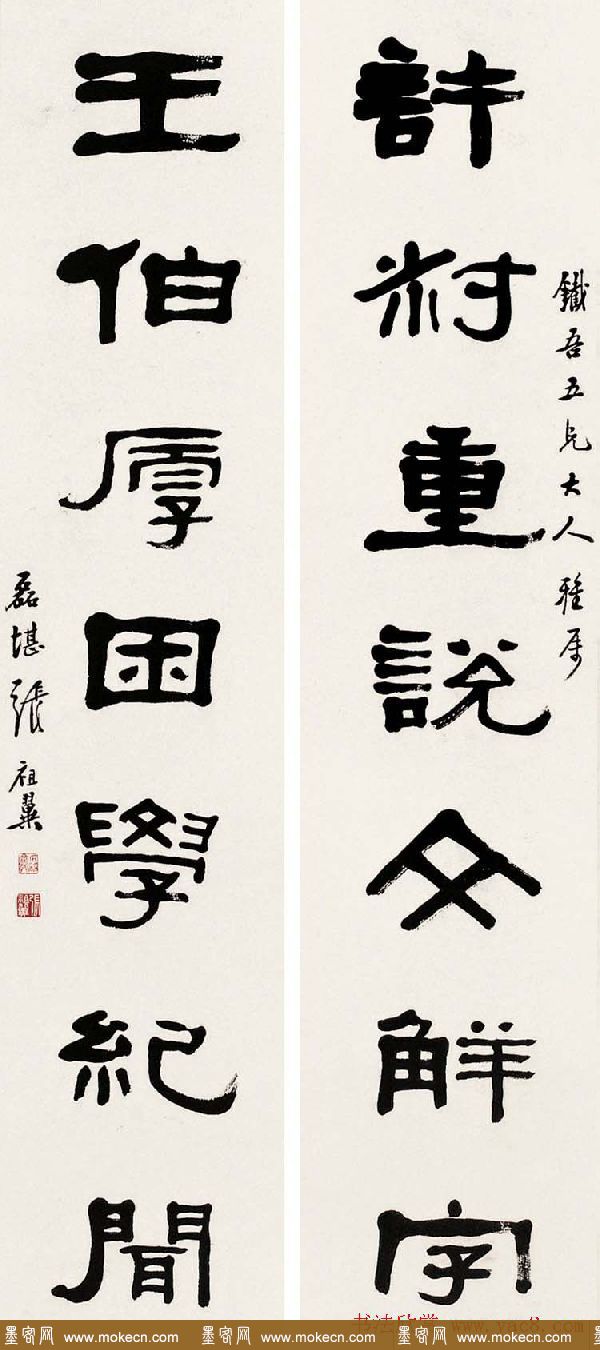 鐵吾五兄大人雅属
許叔重說文解字
王伯厚困學紀聞
磊堪張祖翼
书法欣赏 www.yac8.com
墨客网 www.mokecn.com 墨客网 www.mokecn.com 墨客网 www.mokecn.com